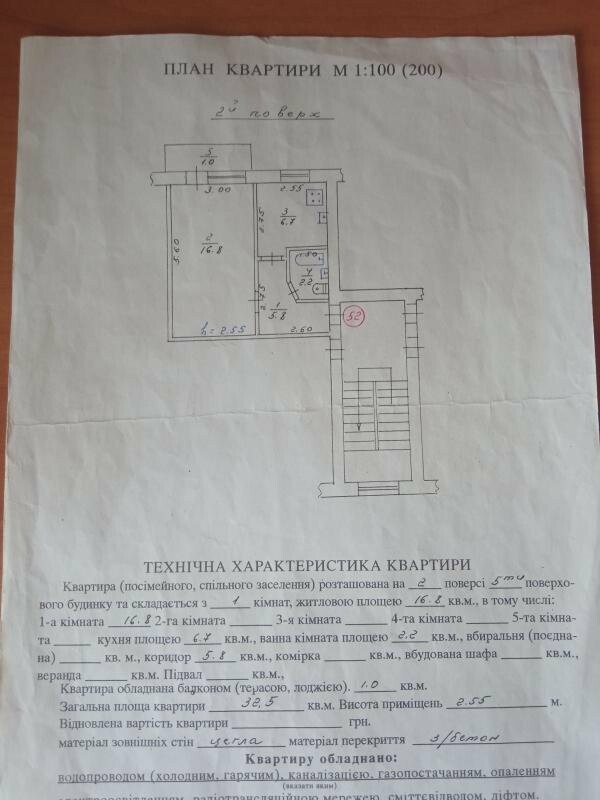 ПЛАН КВАРТИРИ М 1:100 (200)
2й поверх
5
1.0
3.00
2.55
2.75
3
6.7
2
16.8
5.60
1.50
4
2.2
2.75
1
5.8
52
h=2.55
2.60
ТЕХНІЧНА ХАРАКТЕРИСТИКА КВАРТИРИ
Квартира (посімейного, спільного заселення) розташована на 2 поверсі 5ти поверхо-
вого будинку та складається з 1 кімнат, житловою площею 16.8 кв.м., в тому числі:
1-а кімната 16.8 2-га кімната 3-я кімната 4-та кімната 5-та кімна-
та кухня площею 6.7 кв.м., ванна кімната площею 2.2 кв.м., вбиральня (поєдна-
на) кв. м., коридор 5.8 кв.м., комірка кв.м., вбудована шафа кв.м.,
веранда кв.м. Підвал кв.м.,
Квартира обладнана балконом (терасою, лоджією). 1.0 кв.м.
Загальна площа квартири 32,5 кв.м. Висота приміщень 2.55 м.
Відновлена вартість квартири грн.
матеріал зовнішніх стін цегла матеріал перекриття з/бетон
Квартиру обладнано:
водопроводом (холодним, гарячим), каналізацією, газопостачанням, опаленням
(вказати яким)
електроосвітленням, радіотрансляційною мережею, сміттєвідводом, ліфтом.